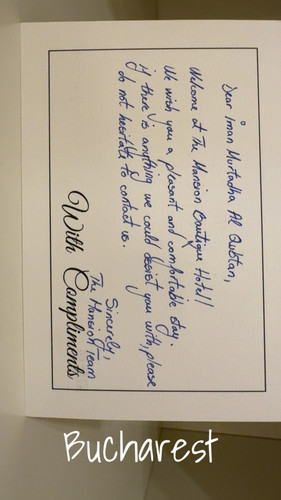 Dear Iman Murtadha Al Qubtan,
Welcome at The Mansion Boutique Hotel!
We wish you a pleasant and comfortable stay.
If there is anything we could assist you with, please
do not hesitate to contact us.
Sincerely,
The Mansion Team
With Compliments
Bucharest